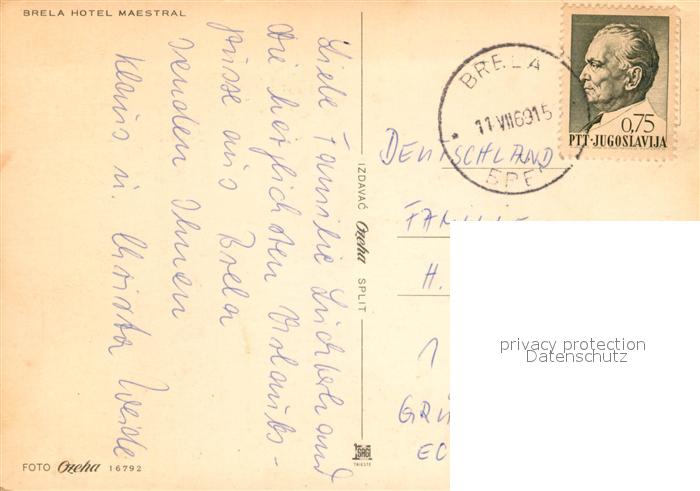 BRELA HOTEL MAESTRAL
Liebe Familie
die herzlichsten Urlaubs-
grüsse aus Brela
senden Ihnen
Klaus u. Christa Weide
IZDAVAČ Ozeha SPLIT
FOTO Ozeha 16792
TRIESTE
BRELA
11 VII 69 15
0,75
PTT·JUGOSLAVIJA
DEUTSCHLAND
FAMILIE
H.
GRÜ
EC
privacy protection
Datenschutz